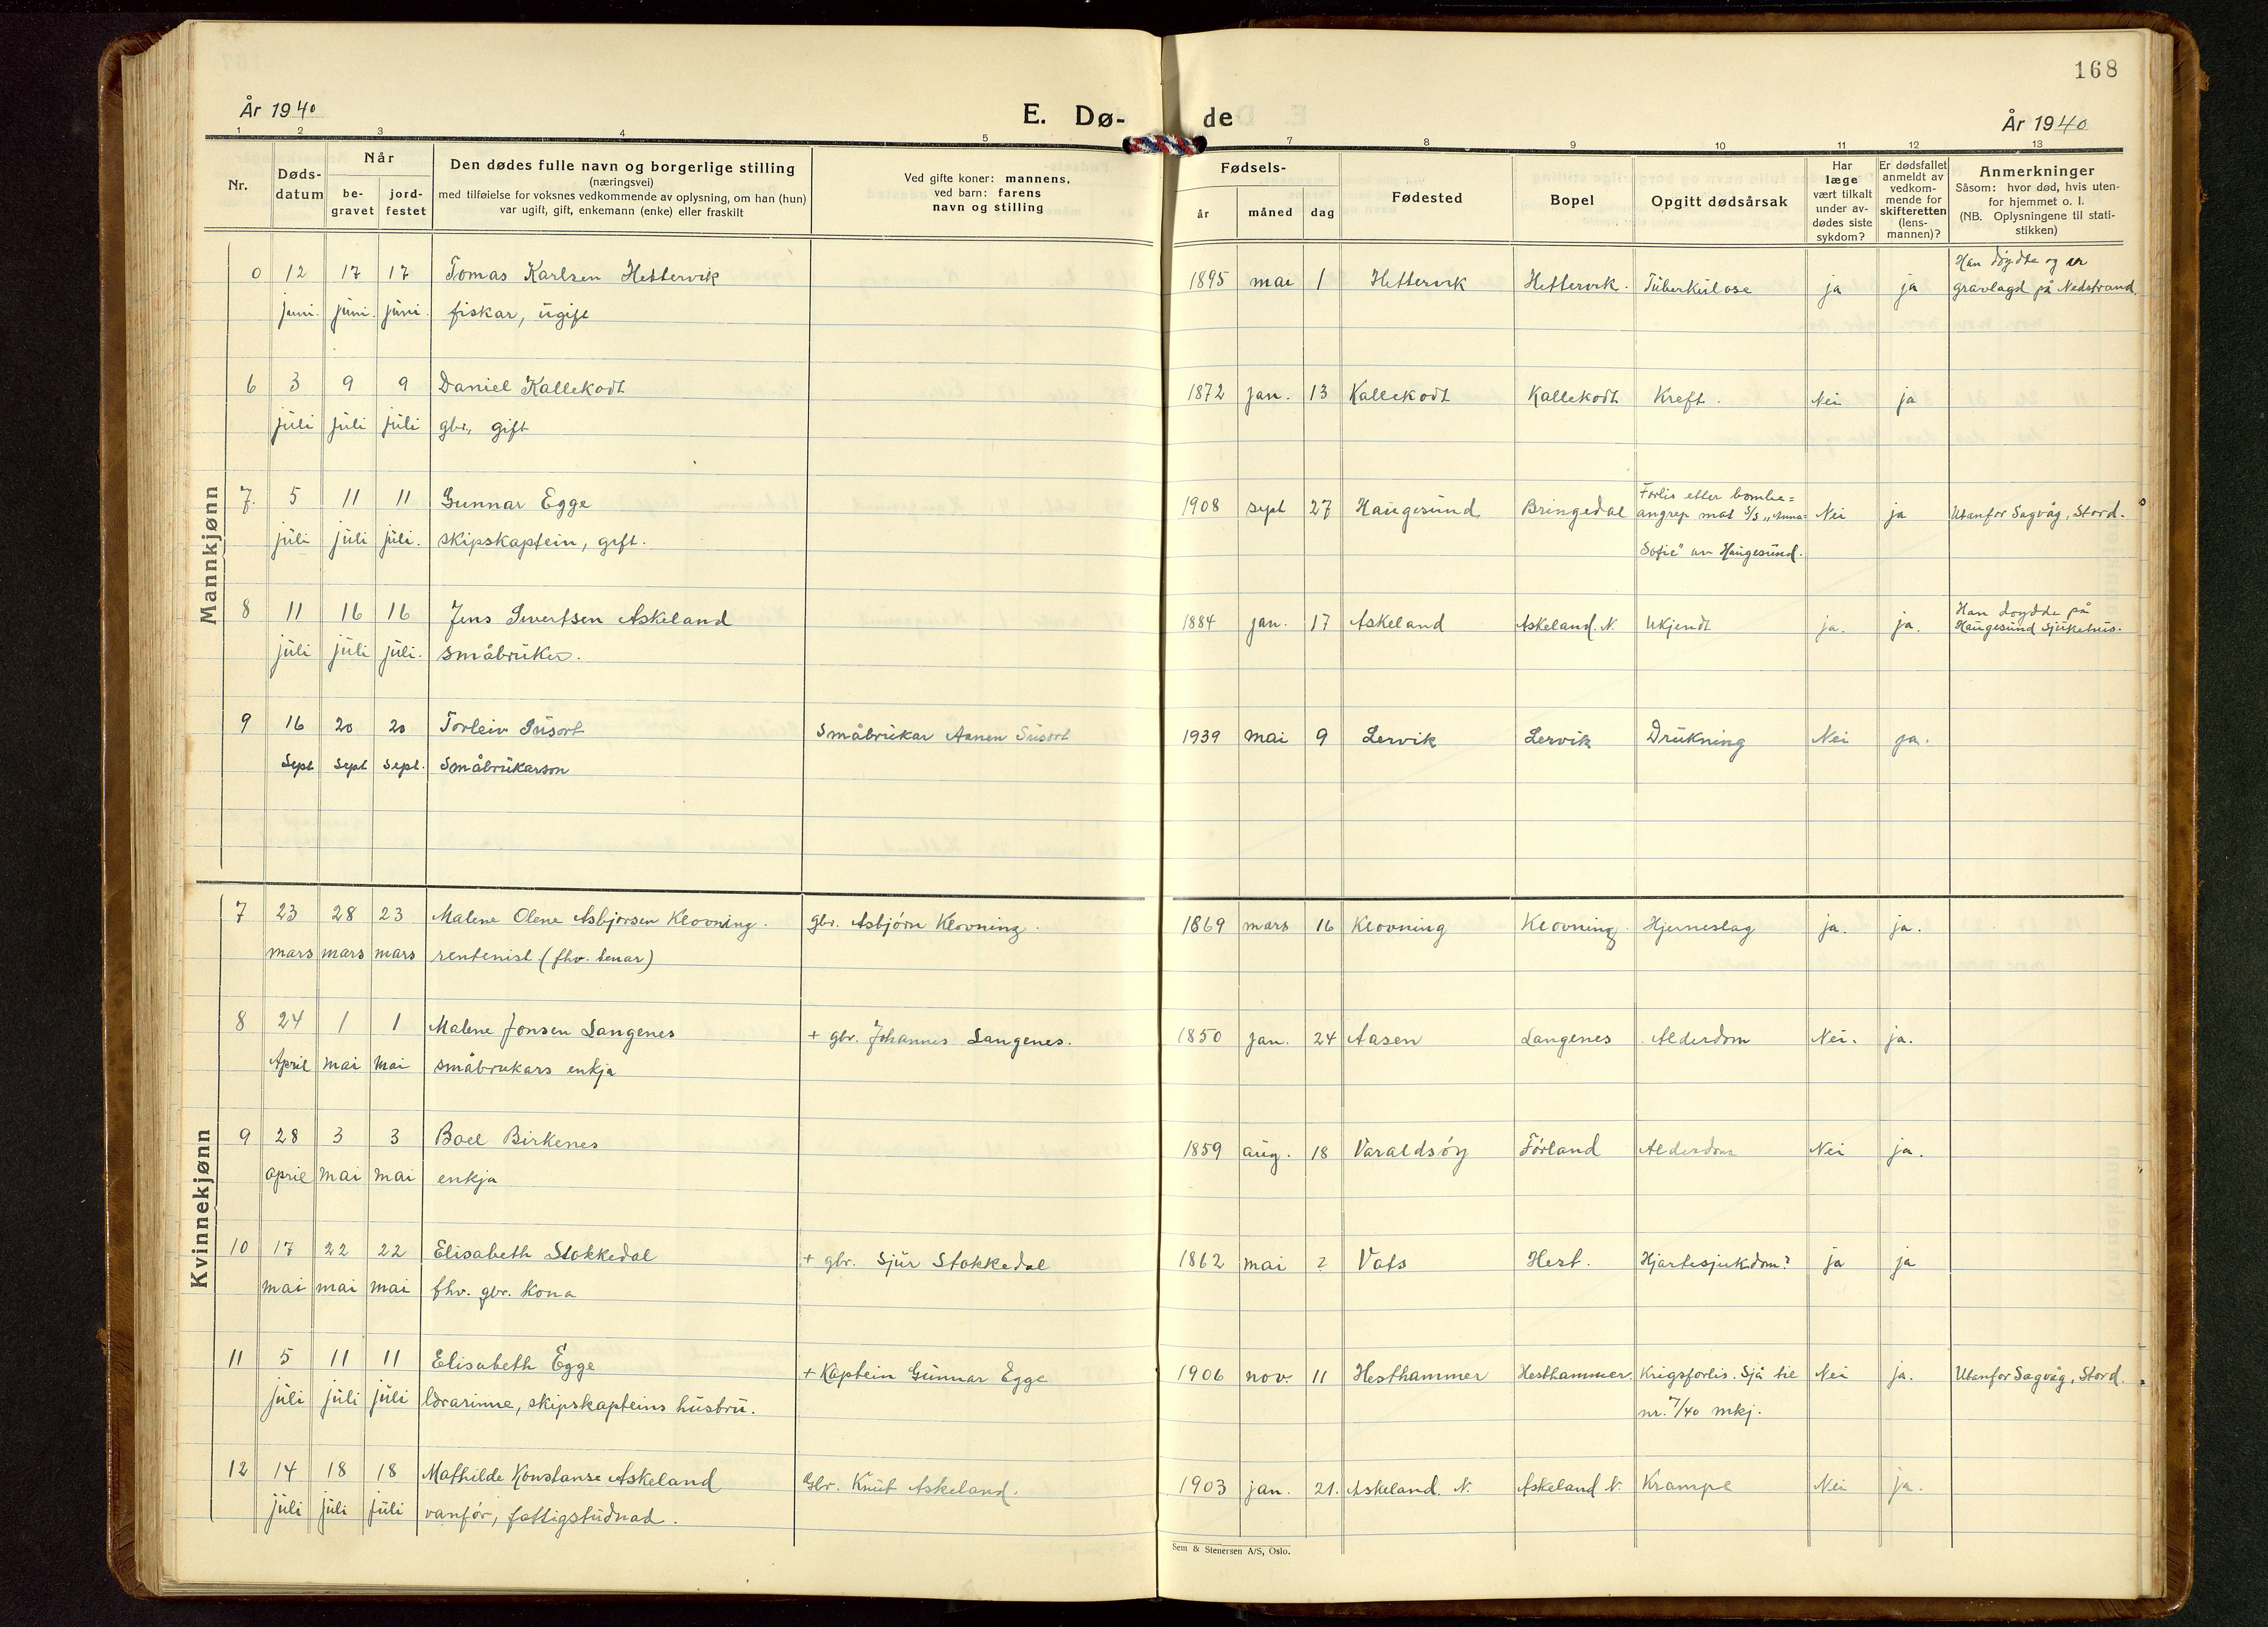 168
År 1940
E. Dø-
de
År 1940
1 2 3 4 5 7 8 9 10 11 12 13
Nr.
Døds-
datum
Når
be-
gravet
jord-
festet
Den dødes fulle navn og borgerlige stilling
(næringsvei)
med tilføielse for voksnes vedkommende av oplysning, om han (hun)
var ugift, gift, enkemann (enke) eller fraskilt
Ved gifte koner: mannens,
ved barn: farens
navn og stilling
Fødsels-
år måned dag
Fødested
Bopel
Opgitt dødsårsak
Har
læge
vært tilkalt
under av-
dødes siste
sykdom?
Er dødsfallet
anmeldt av
vedkom-
mende for
skifteretten
(lens-
mannen)?
Anmerkninger
Såsom: hvor død, hvis uten-
for hjemmet o. l.
(NB. Oplysningene til stati-
stikken)
Mannkjønn
Han døydde og er
0 12 17 17 Tomas Karlsen Hettervik 1895 mai 1 Hettervik Hettervik. Tuberkulose ja ja gravlagd på Nedstrand.
juni. juni. juni. fiskar, ugift
6 3 9 9 Daniel Kallekodt 1872 jan. 13 Kallekodt Kallekodt Kreft. Nei ja
juli juli juli gbr., gift
Forlis etter bombe=
7. 5 11 11 Gunnar Egge 1908 sept 27 Haugesund Bringedal angrep mot S/S „Anna= Nei ja Utanfor Sagvåg, Stord.
juli juli juli. skipskaptein, gift. Sofie" av Haugesund.
Han døydde på
8 11 16 16 Jens Sivertsen Askeland 1884 jan. 17 Askeland Askeland. N. Ukjendt ja. ja. Haugesund Sjukehus.
juli juli juli. småbruker.
9 16 20 20 Torleiv Susort Småbrukar Aanen Susort 1939 mai 9 Lervik Lervik Drukning Nei ja.
Sept Sept Sept. Småbrukarson
Kvinnekjønn
7 23 28 23 Malene Olene Asbjørsen Klovning. gbr. Asbjørn Klovning. 1869 mars 16 Klovning Klovning. Hjerneslag ja. ja.
mars mars mars rentenist (fhv. tenar)
8 24 1 1 Malene Jonsen Langenes + gbr. Johannes Langenes. 1850 jan. 24 Aasen Langenes Alderdom Nei. ja.
April mai mai småbrukars enkja
9 28 3 3 Boel Birkenes 1859 aug. 18 Varaldsöy Førland Alderdom Nei ja.
april mai mai enkja
10 17 22 22 Elisabeth Stokkedal + gbr. Sjur Stokkedal 1862 mai 2 Vats Hest. Hjartesjukdom? ja ja
mai mai mai fhv. gbr. kona
11 5 11 11 Elisabeth Egge + Kaptein Gunnar Egge 1906 nov. 11 Hesthammer Hesthammer. Krigsforlis. Sjå til Nei ja. Utanfor Sagvåg, Stord.
juli juli juli lærarinne, skipskapteins husbru. nr. 7/40 mkj.
12 14 18 18 Mathilde Konstanse Askeland Gbr. Knut Askeland. 1903 jan. 21. Askeland. N. Askeland N. Krampe Nei ja.
juli juli juli vanför, fattigstudnad.
Sem & Stenersen A/S, Oslo.